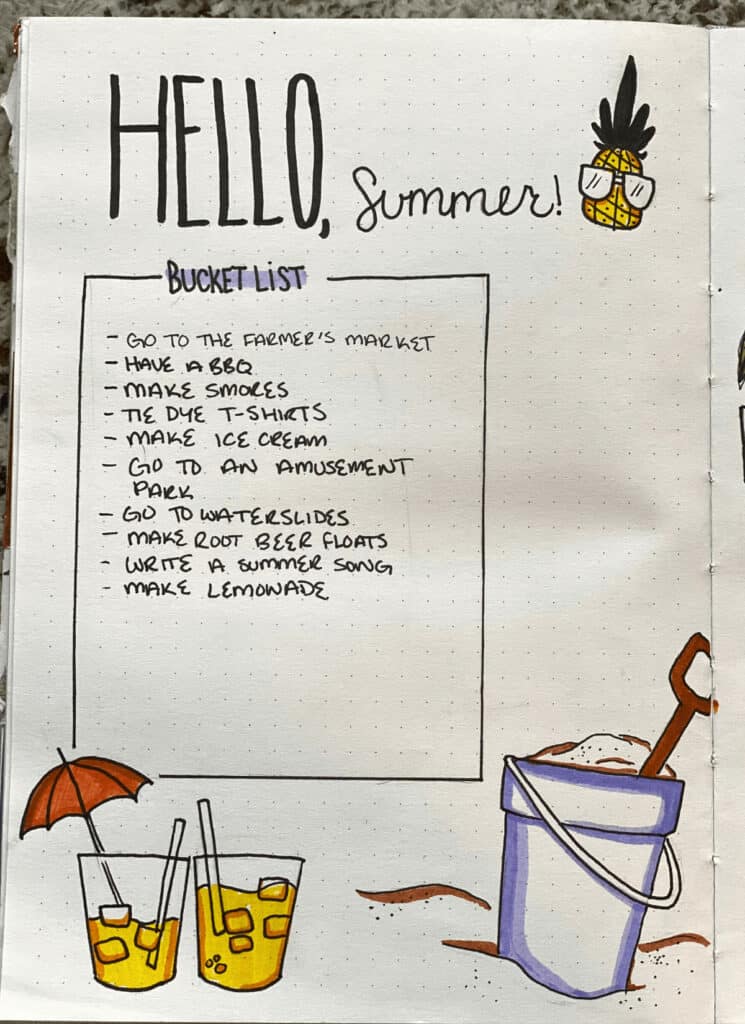 HELLO, Summer!
BUCKET LIST
- GO TO THE FARMER'S MARKET
- HAVE A BBQ
- MAKE SMORES
- TIE DYE T-SHIRTS
- MAKE ICE CREAM
- GO TO AN AMUSEMENT
PARK
- GO TO WATERSLIDES
- MAKE ROOT BEER FLOATS
- WRITE A SUMMER SONG
- MAKE LEMONADE